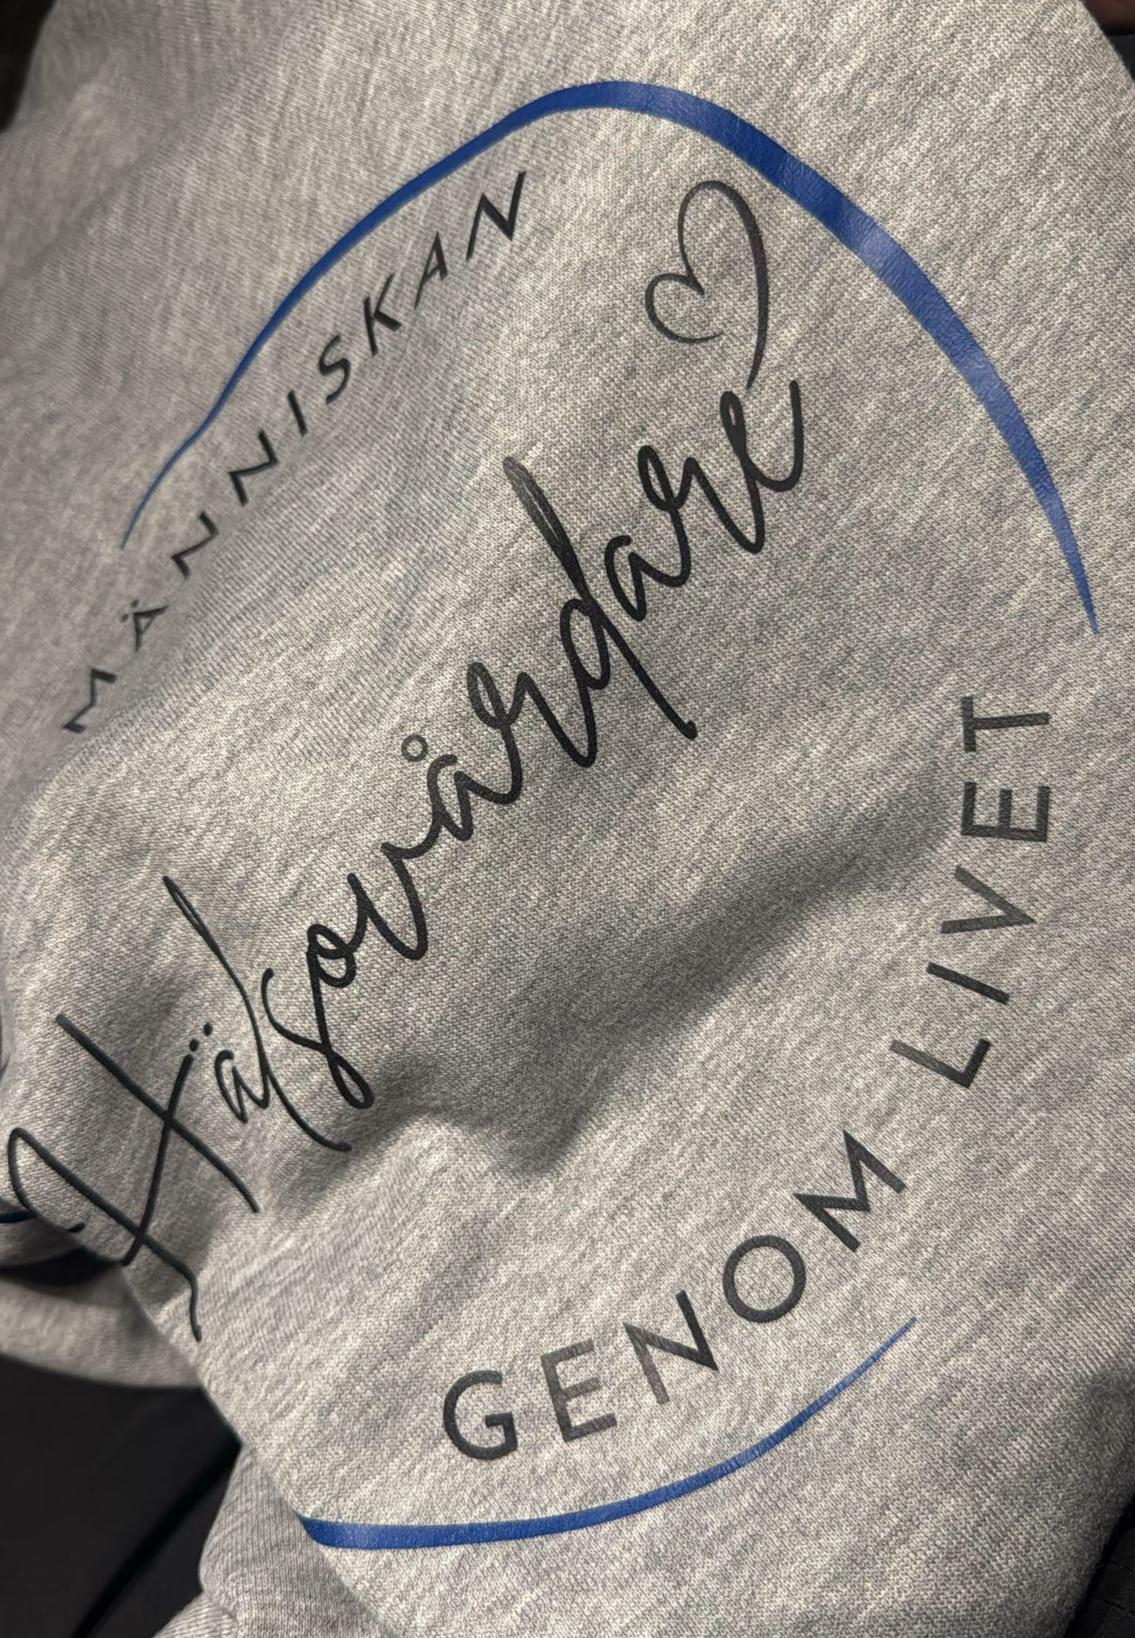 MÄNNISKAN
Hälsovårdare
GENOM LIVET